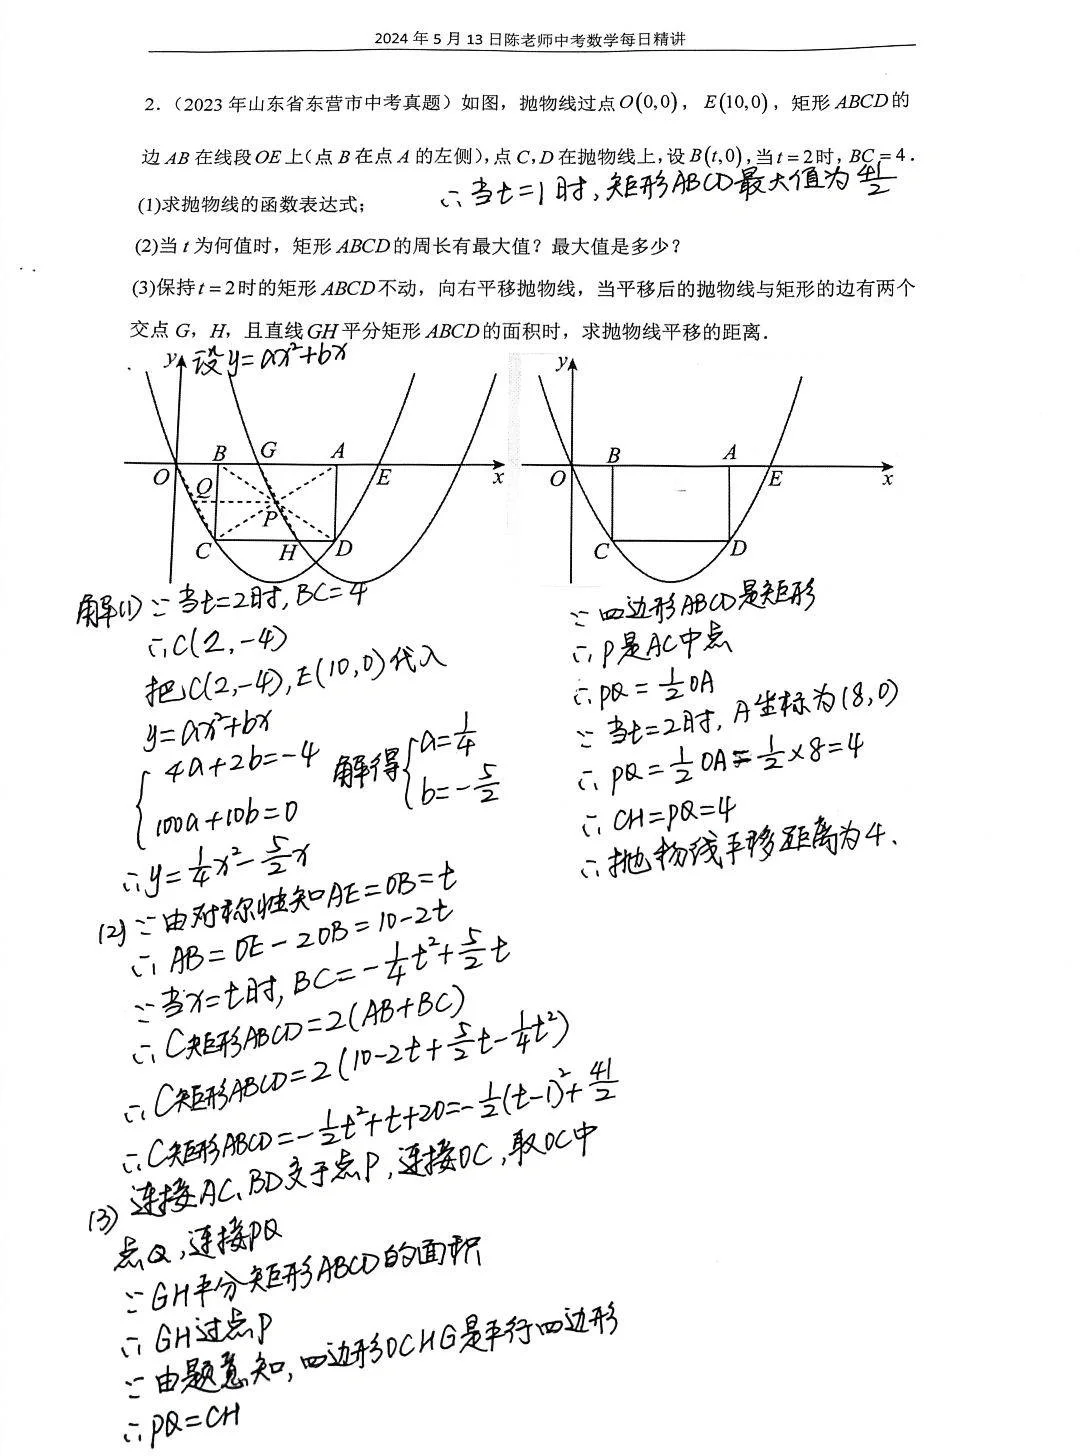 2024 年 5 月 13 日陈老师中考数学每日精讲
2.（2023 年山东省东营市中考真题）如图，抛物线过点 O(0,0)， E(10,0)，矩形 ABCD 的
边 AB 在线段 OE 上（点 B 在点 A 的左侧），点 C，D 在抛物线上，设 B(t,0)，当 t = 2 时，BC = 4．
∴当t=1时,矩形ABCD最大值为41/2
(1)求抛物线的函数表达式；
(2)当 t 为何值时，矩形 ABCD 的周长有最大值？最大值是多少？
(3)保持 t = 2 时的矩形 ABCD 不动，向右平移抛物线，当平移后的抛物线与矩形的边有两个
交点 G，H，且直线 GH 平分矩形 ABCD 的面积时，求抛物线平移的距离．
设y=ax²+bx
y
B G A
O E x
Q
P
C H D
y
B A
O E x
C D
解(1) ∵当t=2时,BC=4
∴C(2,-4)
把C(2,-4),E(10,0)代入
y=ax²+bx
{4a+2b=-4
100a+10b=0
解得{a=1/4
b=-5/2
∴y=1/4x²-5/2x
(2) ∵由对称性知AE=OB=t
∴AB=OE-2OB=10-2t
∵当x=t时,BC=-1/4t²+5/2t
∴C矩形ABCD=2(AB+BC)
∴C矩形ABCD=2(10-2t+5/2t-1/4t²)
∴C矩形ABCD=-1/2t²+t+20=-1/2(t-1)²+41/2
(3) 连接AC、BD交于点P,连接OC,取OC中
点Q,连接PQ
∵GH平分矩形ABCD的面积
∴GH过点P
∵由题意知,四边形OCHG是平行四边形
∴PQ=CH
∵四边形ABCD是矩形
∴P是AC中点
∴PQ=1/2OA
∵当t=2时,A坐标为(8,0)
∴PQ=1/2OA=1/2×8=4
∴CH=PQ=4
∴抛物线平移距离为4.